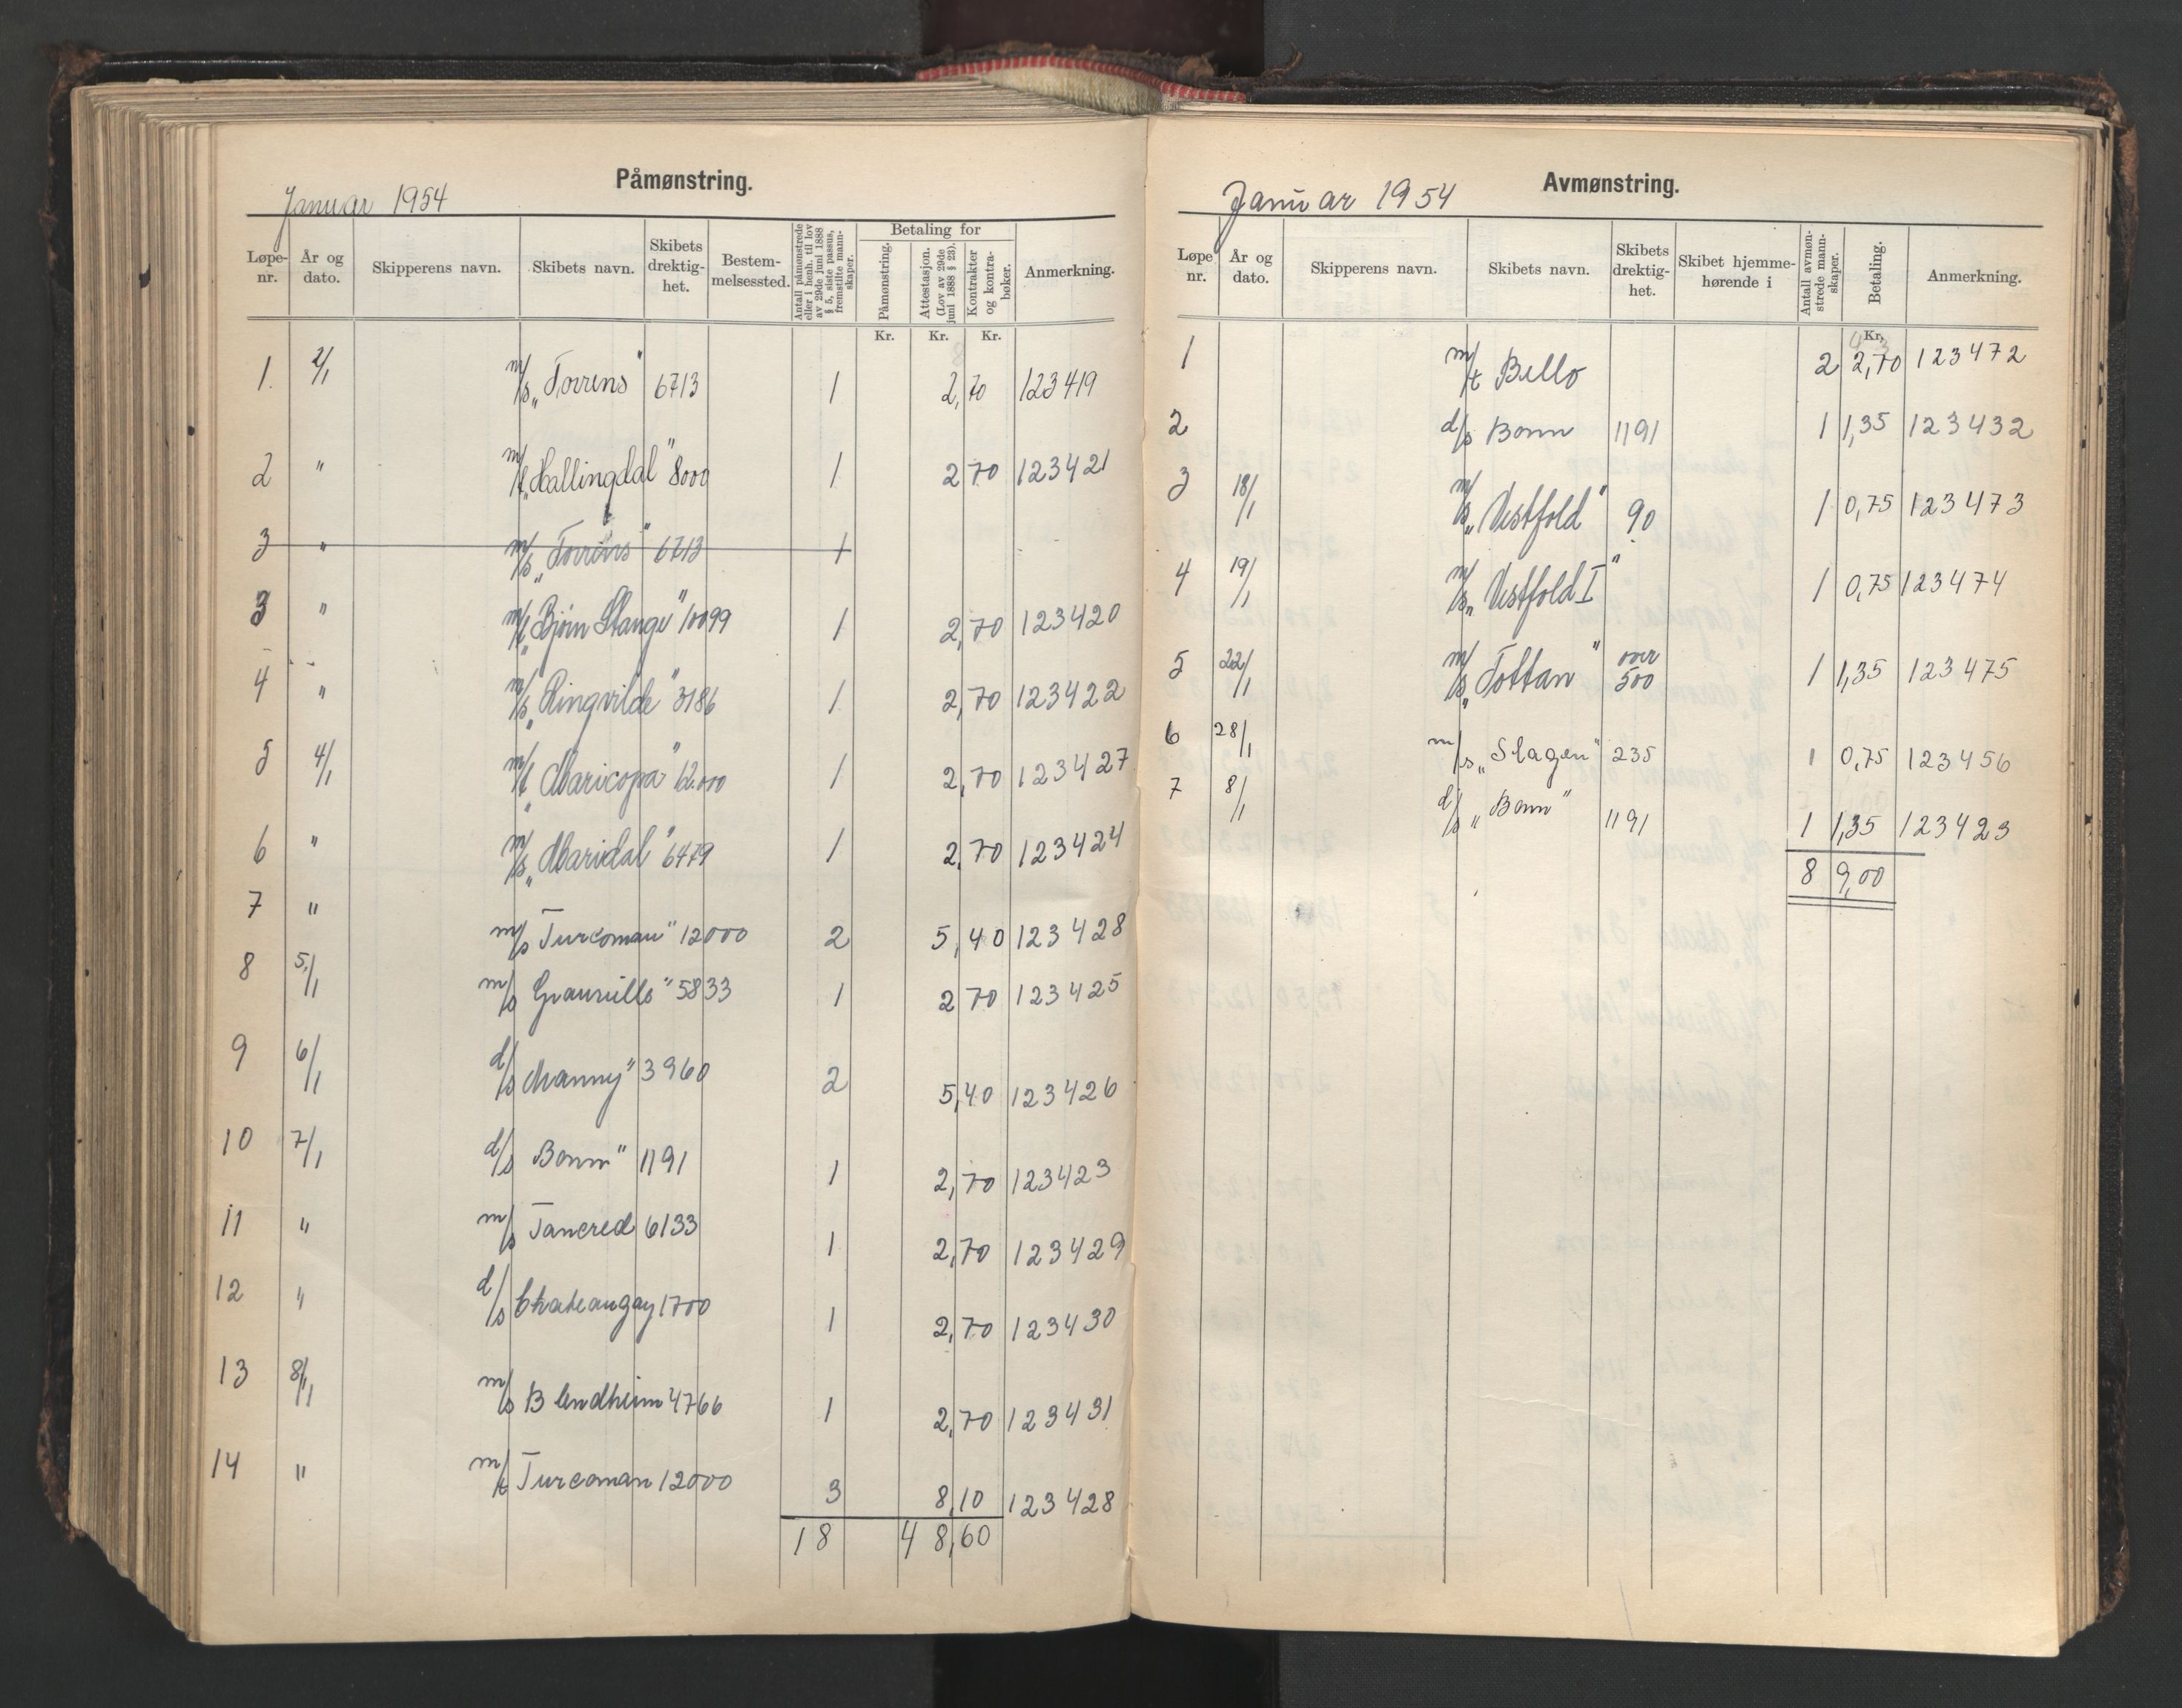 Påmønstring.
Januar 1954
Løpe-nr. År og dato. Skipperens navn. Skibets navn. Skibets drektig-het. Bestem-melsessted. Antall påmønstrede eller i henh. til lov av 29de juni 1888 § 5, siste passus, fremstilte mann-skaper. Betaling for Påmønstring. Attestasjon. (Lov av 29de juni 1888 § 23). Kontrakter og kontra-bøker. Anmerkning.
Kr. Kr. Kr.
1. 2/1 m/s „Torrens" 6713 1 2,70 123419
2 " m/t „Hallingdal" 8000 1 2 70 123421
3 " m/s „Torrens" 6713 1
3 " m/t „Bjørn Stange" 10099 1 2,70 123420
4 " m/s „Ringvilde" 3186 1 2,70 123422
5 4/1 m/t „Maricopa" 12.000 1 2,70 123427
6 " m/s „Maridal" 6479 1 2,70 123424
7 " m/s Turcoman" 12000 2 5,40 123428
8 5/1 m/s Granville" 5833 1 2 70 123425
9 6/1 d/s Manny" 3960 2 5,40 123426
10 7/1 d/s Bonn" 1191 1 2,70 123423
11 " m/s Tancred 6133 1 2,70 123429
12 " d/s Chateaugay 1700 1 2,70 123430
13 8/1 m/s Blendheim 4766 1 2,70 123431
14 " m/t Turcoman 12000 3 8,10 123428
18 48,60
Avmønstring.
Januar 1954
Løpe nr. År og dato. Skipperens navn. Skibets navn. Skibets drektig-het. Skibet hjemme-hørende i Antall avmøn-strede mann-skaper. Betaling. Anmerkning.
Kr.
1 m/t Bello 2 2,70 123472
2 d/s Bonn 1191 1 1,35 123432
3 18/1 m/s „Vestfold" 90 1 0,75 123473
4 19/1 m/s „Vestfold I" 1 0,75 123474
5 22/1 m/s „Tottan" over 500 1 1,35 123475
6 28/1 m/s „Slagen" 235 1 0,75 123456
7 8/1 d/s „Bonn" 1191 1 1,35 123423
8 9,00